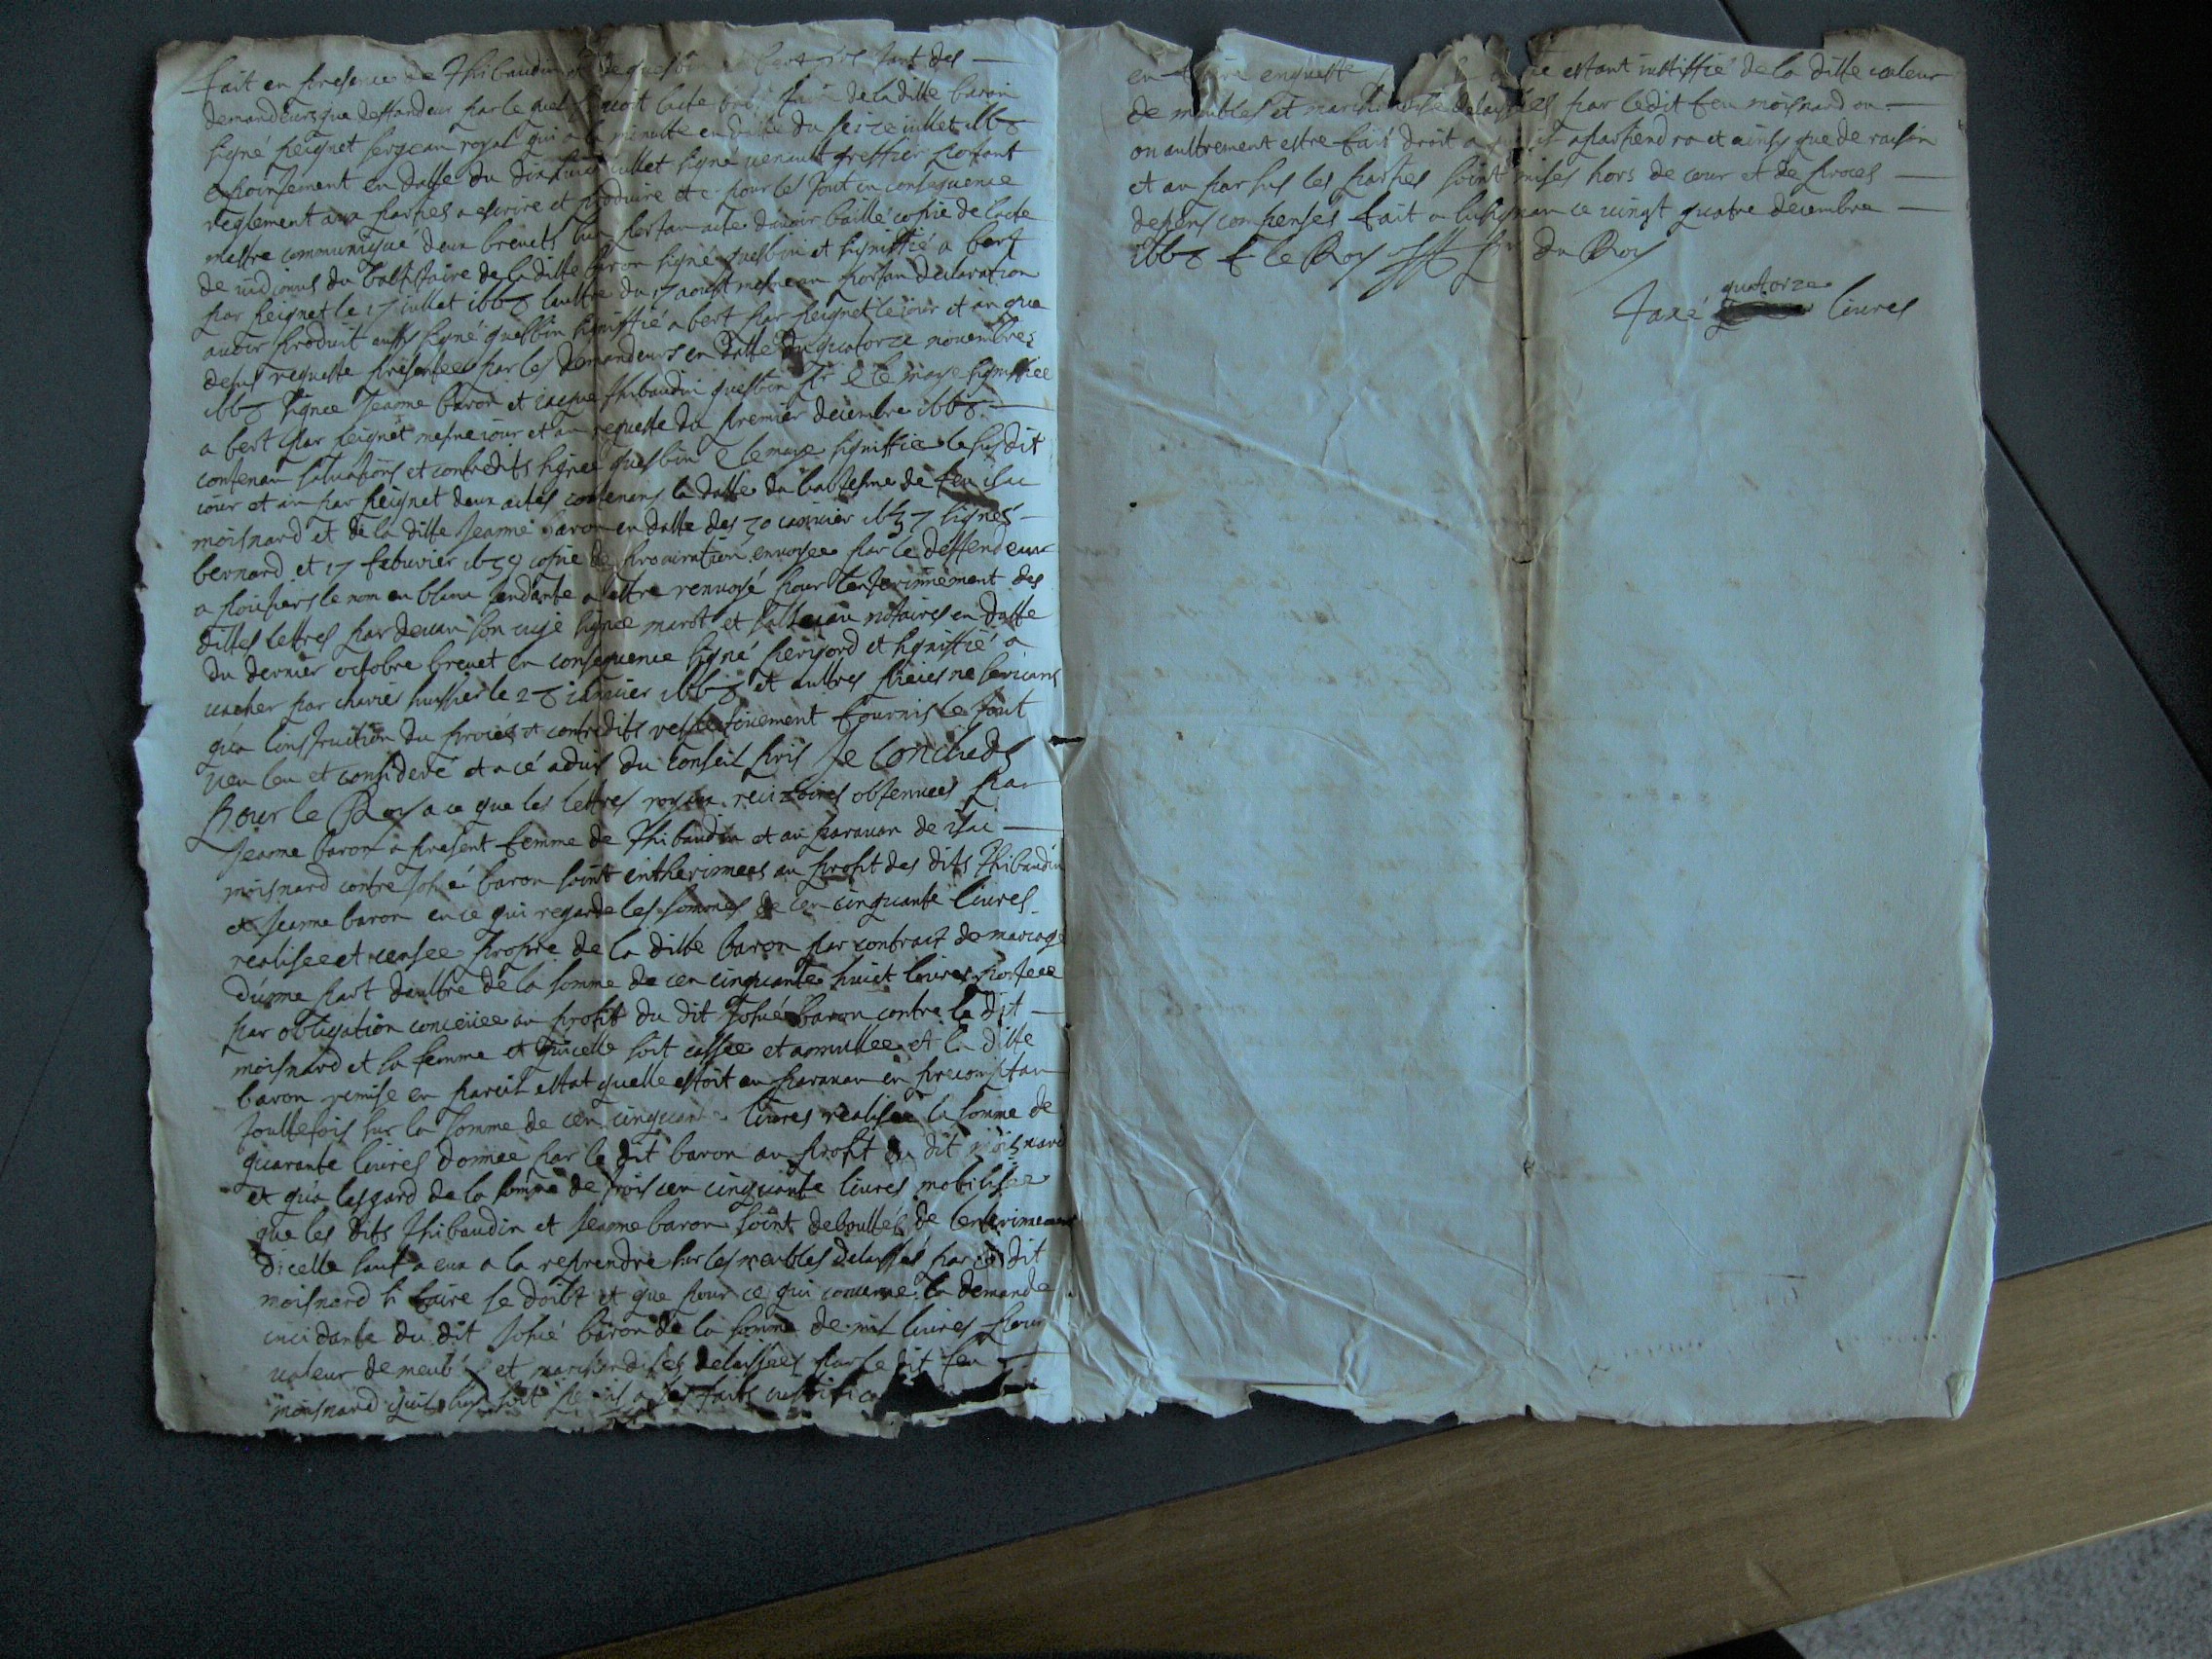 fait en presence de Thibaudin et de quesbin bert tant des
demandeurs que deffandeur par le quel de la ditte baron
signé peignet sergean royal qui a la minutte en datte du seize iuillet 1668
apointement en datte du iuillet signé greffier portant
reglement aux parties a escrire et produire etc pour le tout en consequence
mettre communiqué deux breuets lun portan acte dauoir baillé copie de lacte
de du baptistaire de la ditte baron signé quesbin et signiffié a bert
par peignet le 17 iuillet 1668 laultre du 17 aoust mesme an portan declaration
auoir produit aussy signé quesbin signiffié a bert par peignet le iour et an que
desus requeste presentee par les demandeurs en datte du quatorze nouembre
1668 signee Jeanne baron et iacque thibaudin quesbin pr e le maye signiffiee
a bert par peignet mesme iour et an requeste du premier decembre 1668
contenan saluations et contredits signee quesbin e lemaye signiffiee le susdit
iour et an par peignet deux actes contenans la datte du baptesme de feu isac
moisnard et de la ditte Jeanne baron en datte des 30 ianuier 1637 signés
bernard et 17 feburier 1639 copie de procuration enuoyee par le deffendeur
a poictiers le nom en blanc tendante a estre renuoyé pour lenterinnement des
dittes lettres par deuan son iuge signee marot et notaires en datte
du dernier octobre breuet en consequence signé perigord et signiffié a
uacher par huissier le 28 ianuier 1668 et aultres pieces ne seruans
qua linstruction du procés et contredits respectiuement fournis le tout
ueu leu et consideré et a cé aduis du conseil pris Je Concluds
Pour le Roy a ce que les lettres royaux recizoires obtenuees par
Jeanne baron a present femme de Thibaudin et au parauan de isac
moisnard contre Josué baron soint intherinnees au profit des dits Thibaudin
et Jeanne baron en ce qui regarde les sommes de cen cinquante liures
realisee et censee propre de la ditte baron par contract de mariage
dunne part daultre de la somme de cen cinquante huict liures portee
par obligation conceuee au profit du dit Josué baron contre le dit
moisnard et sa femme et quicelle soit cassee et annullee et la ditte
baron remise en pareil estat quelle estoit au parauan en precomptan
touttefois sur la somme de cen cinquante liures realisee la somme de
quarante liures donnee par le dit baron au profit du dit moisnard
et qua lesgard de la somme de trois cen cinquante liures mobilisee
que les dits Thibaudin et Jeanne baron soint deboutés de lenterinnement
dicelle sauf a eux a la reprendre sur les meubles delaissés par le dit
moisnard si faire se doibt et que pour ce qui concerne la demande
incidante du dit Josué baron de la somme de mil liures pour
ualeur de meubles et marchandises delaissees par le dit feu
moisnard quil luy soit permis a ses faits iustifica
en enqueste estant iustiffié de la ditte ualeur
de meubles et marchandise delaissees par ledit feu moisnard ou
ou aultrement estre fait droit a qui il apartiendra et ainsy que de raison
et au parsus les parties soint mises hors de cour et de proces
depens compensés fait a lusignan ce uingt quatre decembre
1668 f le Roy pr du Roy
quatorze
Taxé liures